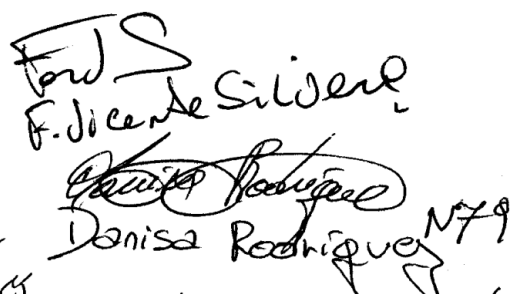 Ford S
F. Vicente Silvera
Danisa Rodriguez
Danisa Rodriguez N79